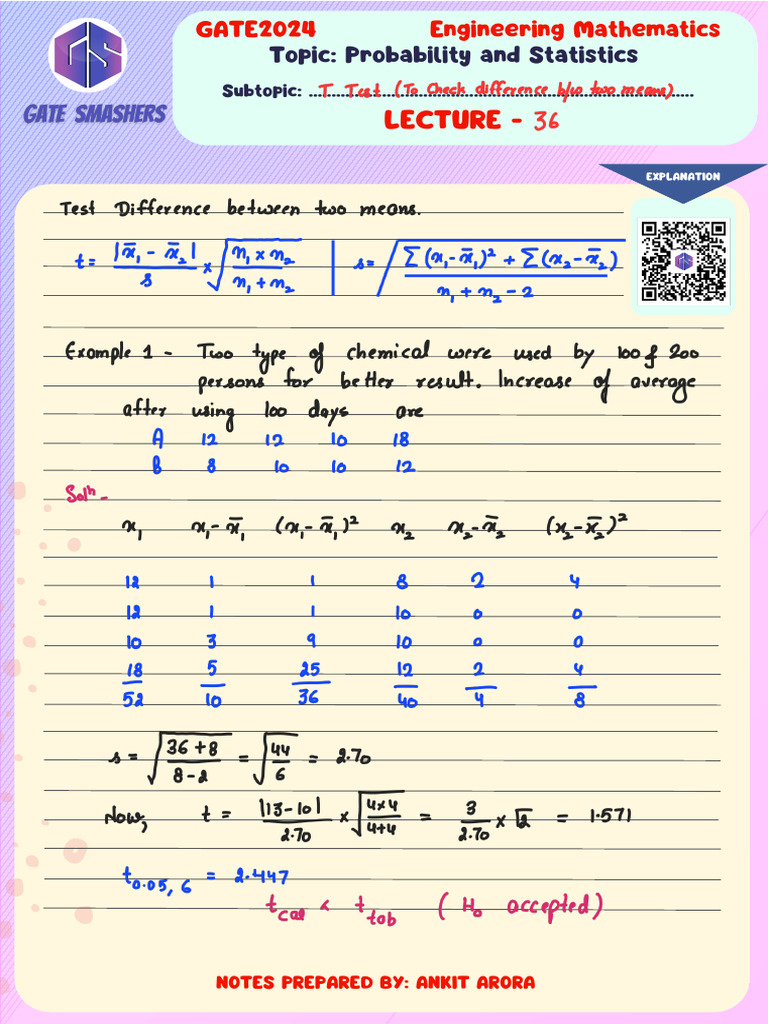 GATE2024 Engineering Mathematics
Topic: Probability and Statistics
GATE SMASHERS
Subtopic: T Test (To Check difference b/w two means)
LECTURE - 36
EXPLANATION
Test Difference between two means.
t = |x̄₁ - x̄₂| / s × √(n₁ × n₂ / n₁ + n₂) | s = √(Σ(x₁ - x̄₁)² + Σ(x₂ - x̄₂) / n₁ + n₂ - 2)
Example 1 - Two type of chemical were used by 100 of 200
persons for better result. Increase of average
after using 100 days are
A 12 12 10 18
B 8 10 10 12
Solⁿ -
x₁ x₁ - x̄₁ (x₁ - x̄₁)² x₂ x₂ - x̄₂ (x₂ - x̄₂)²
12 1 1 8 2 4
12 1 1 10 0 0
10 3 9 10 0 0
18 5 25 12 2 4
52 10 36 40 4 8
s = √(36 + 8 / 8 - 2) = √(44 / 6) = 2.70
Now, t = |13 - 10| / 2.70 × √(4 × 4 / 4 + 4) = 3 / 2.70 × √2 = 1.571
t₀.₀₅, ₆ = 2.447
t cal < t tab ( H₀ accepted)
NOTES PREPARED BY: ANKIT ARORA